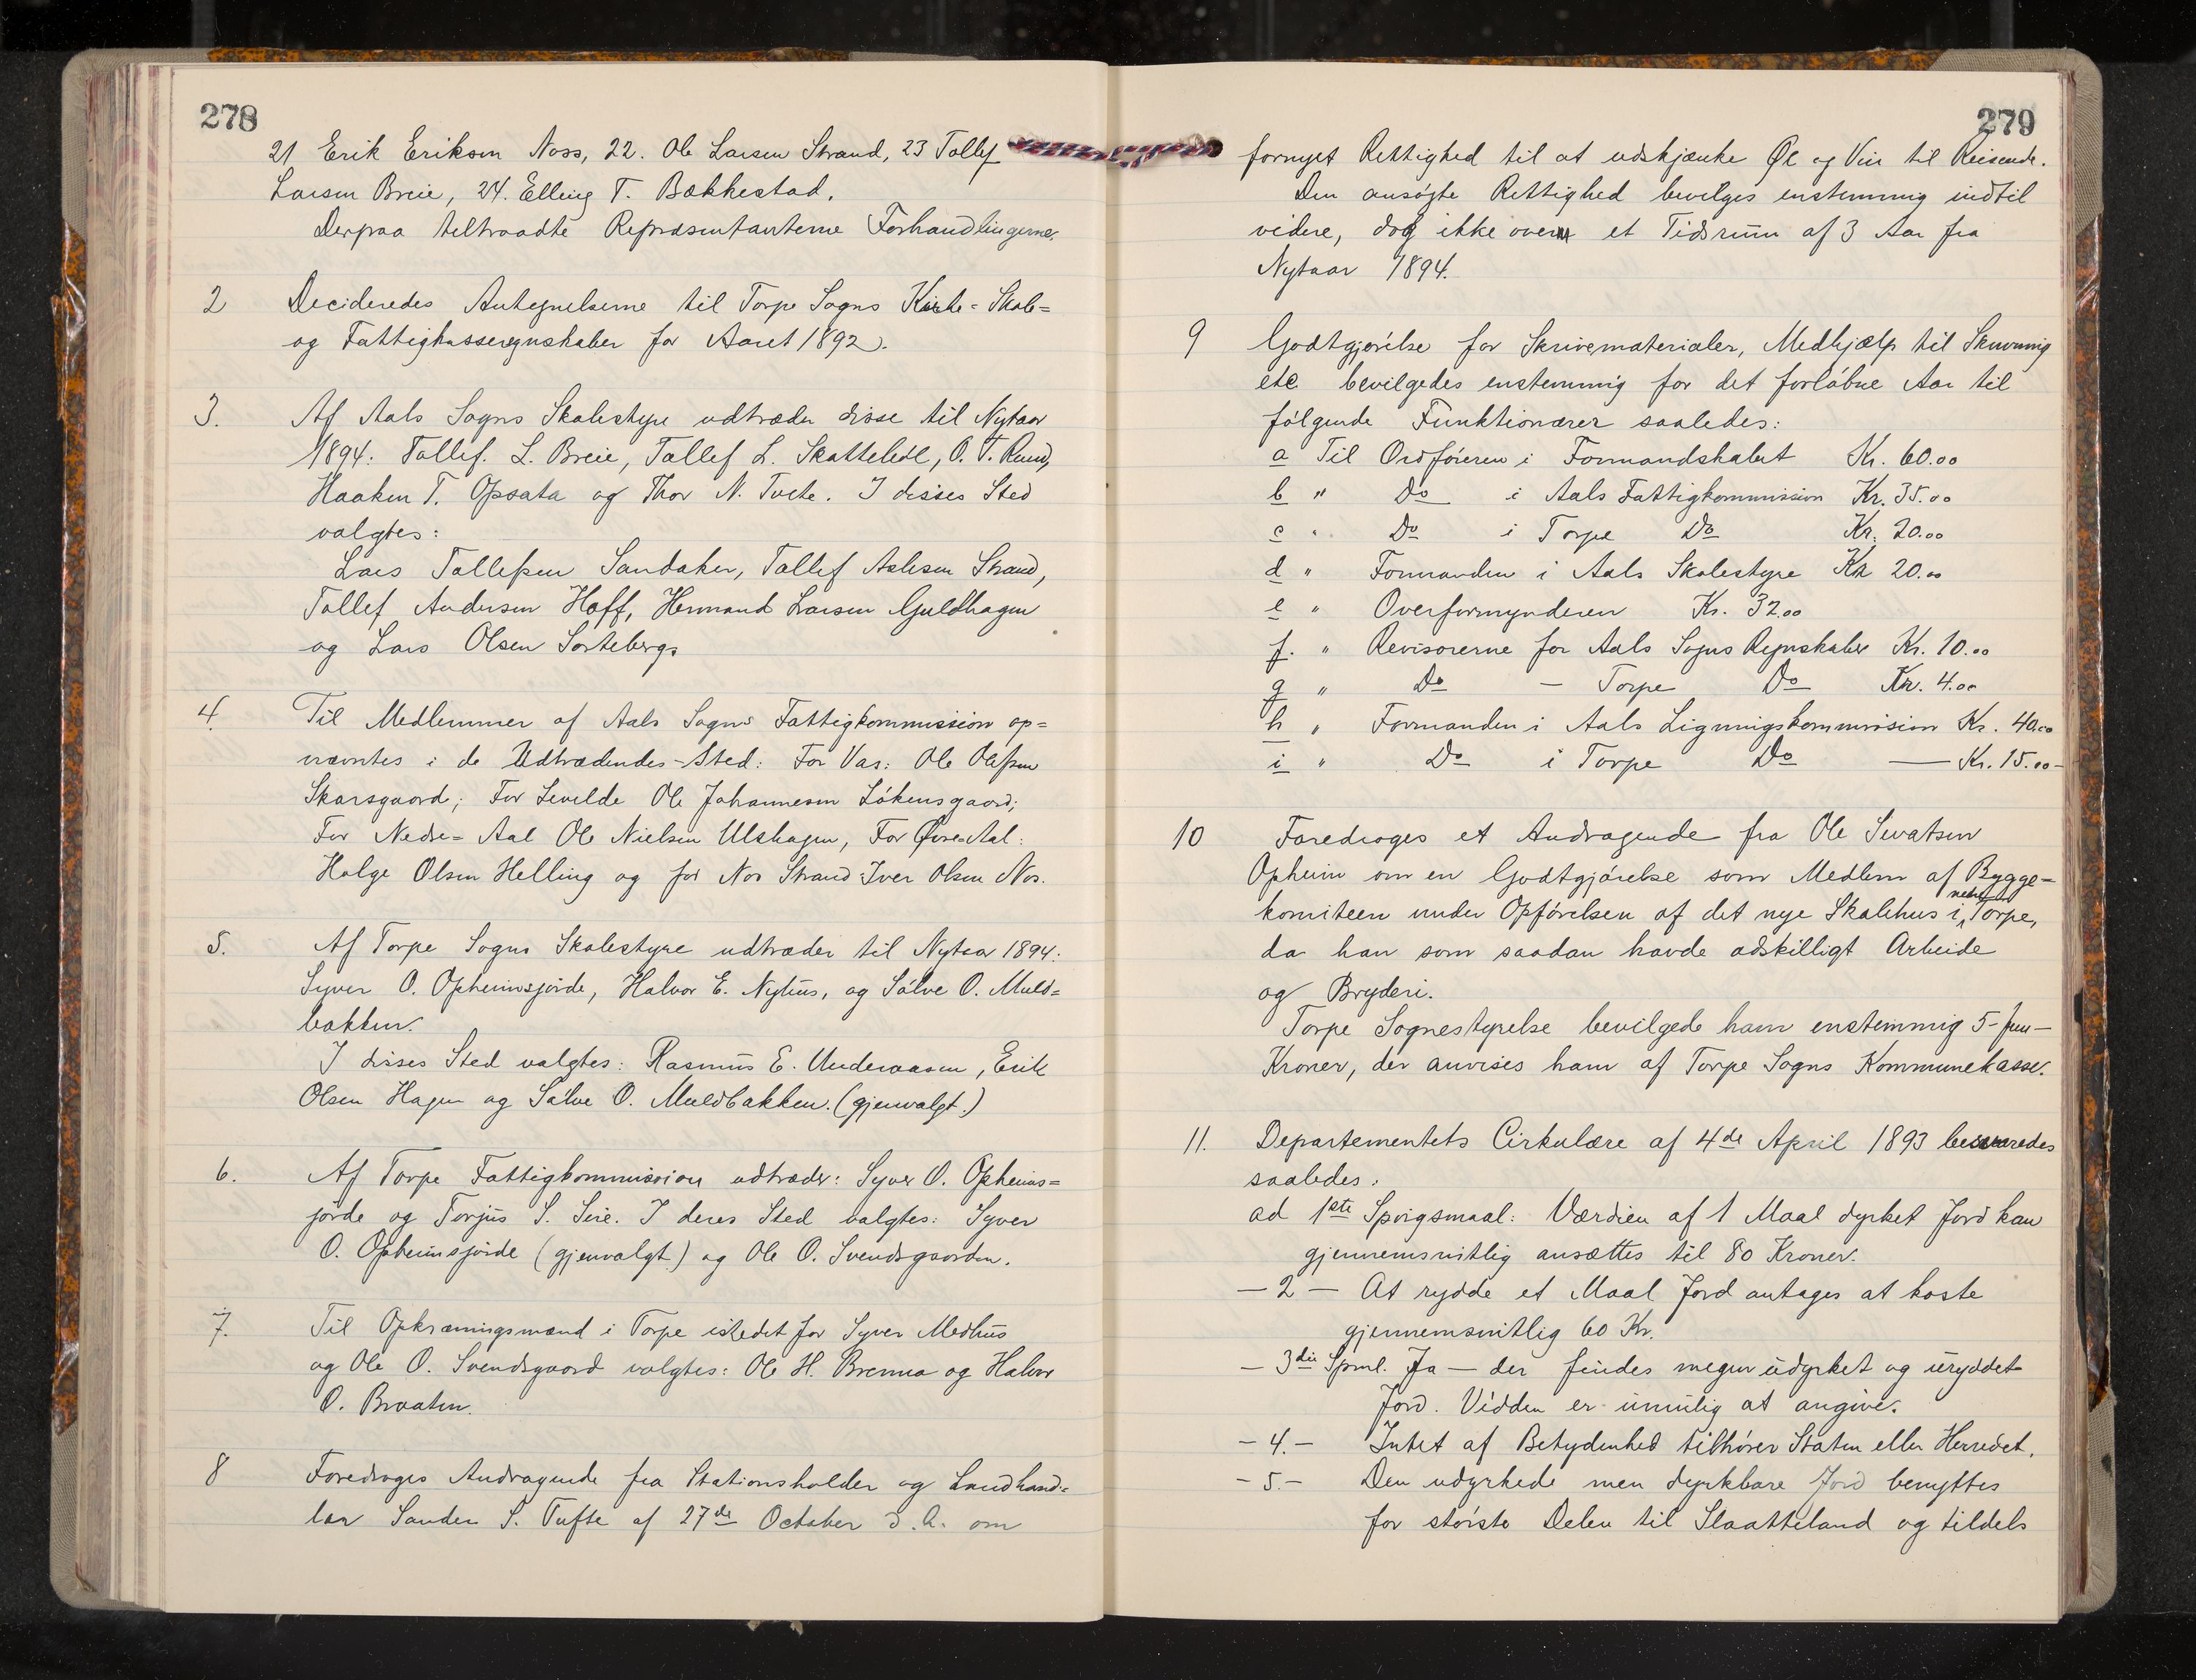 278
21 Erik Eriksen Noss, 22. Ole Larsen Strand, 23 Tollef
Larsen Breie, 24. Elling T. Bækkestad.
Derpaa tiltraadte Repræsentanterne Forhandlingerne.
2 Decideredes Antegnelserne til Torpe Sogns Kirke- Skole-
og Fattigkasseregnskaber for Aaret 1892.
3. Af Aals Sogns Skolestyre udtræder disse til Nytaar
1894: Tollef. L. Breie, Tollef L. Skattebøl, O. T. Ruud,
Haaken T. Opsata og Thor N. Tveto. I disses Sted
valgtes:
Lars Tollefsen Sandaker, Tollef Aslesen Strand,
Tollef Andersen Hoff, Hermand Larsen Guldhagen
og Lars Olsen Sorteberg.
4. Til Medlemmer af Aals Sogns Fattigkommission op=
nævntes i de Udtrædendes Sted: For Vas: Ole Olefsen
Skarsgaard; For Levilde Ole Johannesen Løkensgaard;
For Nedre= Aal Ole Nielsen Ulshagen, For Øvre=Aal:
Holge Olsen Helling og for Nos Strand Iver Olsen Nos.
5. Af Torpe Sogns Skolestyre udtræder til Nytaar 1894:
Syver O. Opheimsjorde, Halvor E. Nyhus, og Sølve O. Muld=
bakken.
I disses Sted valgtes: Rasmus E. Underaasen, Erik
Olsen Hagen og Sølve O. Muldbakken. (gjenvalgt.)
6. Af Torpe Fattigkommission udtræder: Syver O. Opheims=
jorde og Torjus S. Seie. I deres Sted valgtes: Syver
O. Opheimsjorde (gjenvalgt.) og Ole O. Svendsgaarden.
7. Til Opkrævningsmænd i Torpe istedet for Syver Medhus
og Ole O. Svendsgaard valgtes: Ole H. Brenna og Halvor
O. Braaten.
8 Foredroges Andragende fra Stationsholder og Landhand=
ler Sander S. Tufte af 27de October d.A. om
279
fornyet Rettighed til at udskjænke Øl og Vin til Reisende.
Den ansøgte Rettighed bevilges enstemmig indtil
videre, dog ikke over et Tidsrum af 3 Aar fra
Nytaar 1894.
9 Godtgjørelse for Skrivematerialer, Medhjælp til Skrivning
etc bevilgedes enstemmig for det forløbne Aar til
følgende Funktionærer saaledes:
a Til Ordføreren i Formandskabet Kr. 60.00
b " Do i Aals Fattigkommission Kr. 35.00
c " Do i Torpe Do Kr. 20.00
d " Formanden i Aals Skolestyre Kr 20.00
e " Overformynderen Kr. 32.00
f. " Revisorerne for Aals Sogns Regnskaber Kr. 10.00
g " Do — Torpe Do Kr. 4.00
h " Formanden i Aals Ligningskommission Kr. 40.00
i " Do i Torpe Do — Kr. 15.00 -
10 Foredroges et Andragende fra Ole Sevatsen
Opheim om en Godtgjørelse som Medlem af Bygge-
komiteen under Opførelsen af det nye Skolehus i nedre Torpe,
da han som saadan havde adskilligt Arbeide
og Bryderi.
Torpe Sognestyrelse bevilgede ham enstemmig 5 - fem -
Kroner, der anvises ham af Torpe Sogns Kommunekasse.
11. Departementets Cirkulære af 4de April 1893 besvaredes
saaledes:
ad 1ste Spørgsmaal: Værdien af 1 Maal dyrket Jord kan
gjennemsnitlig ansættes til 80 Kroner.
— 2 — At rydde et Maal Jord antages at koste
gjennemsnitlig 60 Kr.
— 3die Spml. Ja — der findes megen udyrket og uryddet
Jord. Vidden er umulig at angive.
— 4. — Intet af Betydenhed tilhører Staten eller Herredet.
— 5. — Den udyrkede men dyrkbare Jord benyttes
for største Delen til Slaatteland og tildels